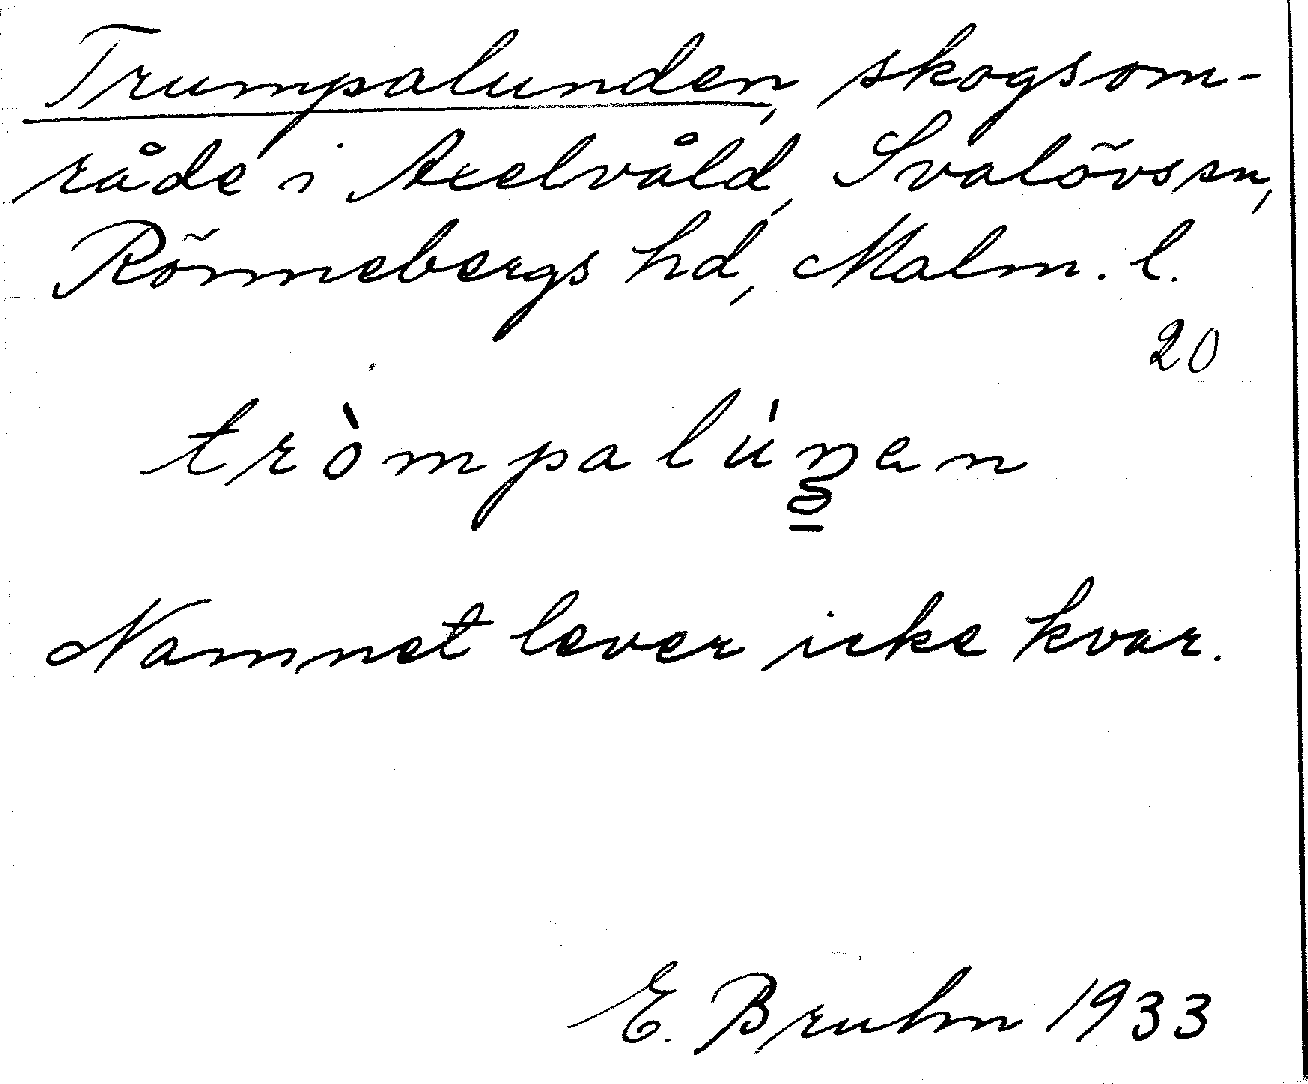 Trumpalunden, skogsom-
råde i Axelvåld, Svalövs sn,
Rönnebergs hd, Malm. l.
20
tròmpalún̥en
Namnet lever icke kvar.
E. Bruhn 1933